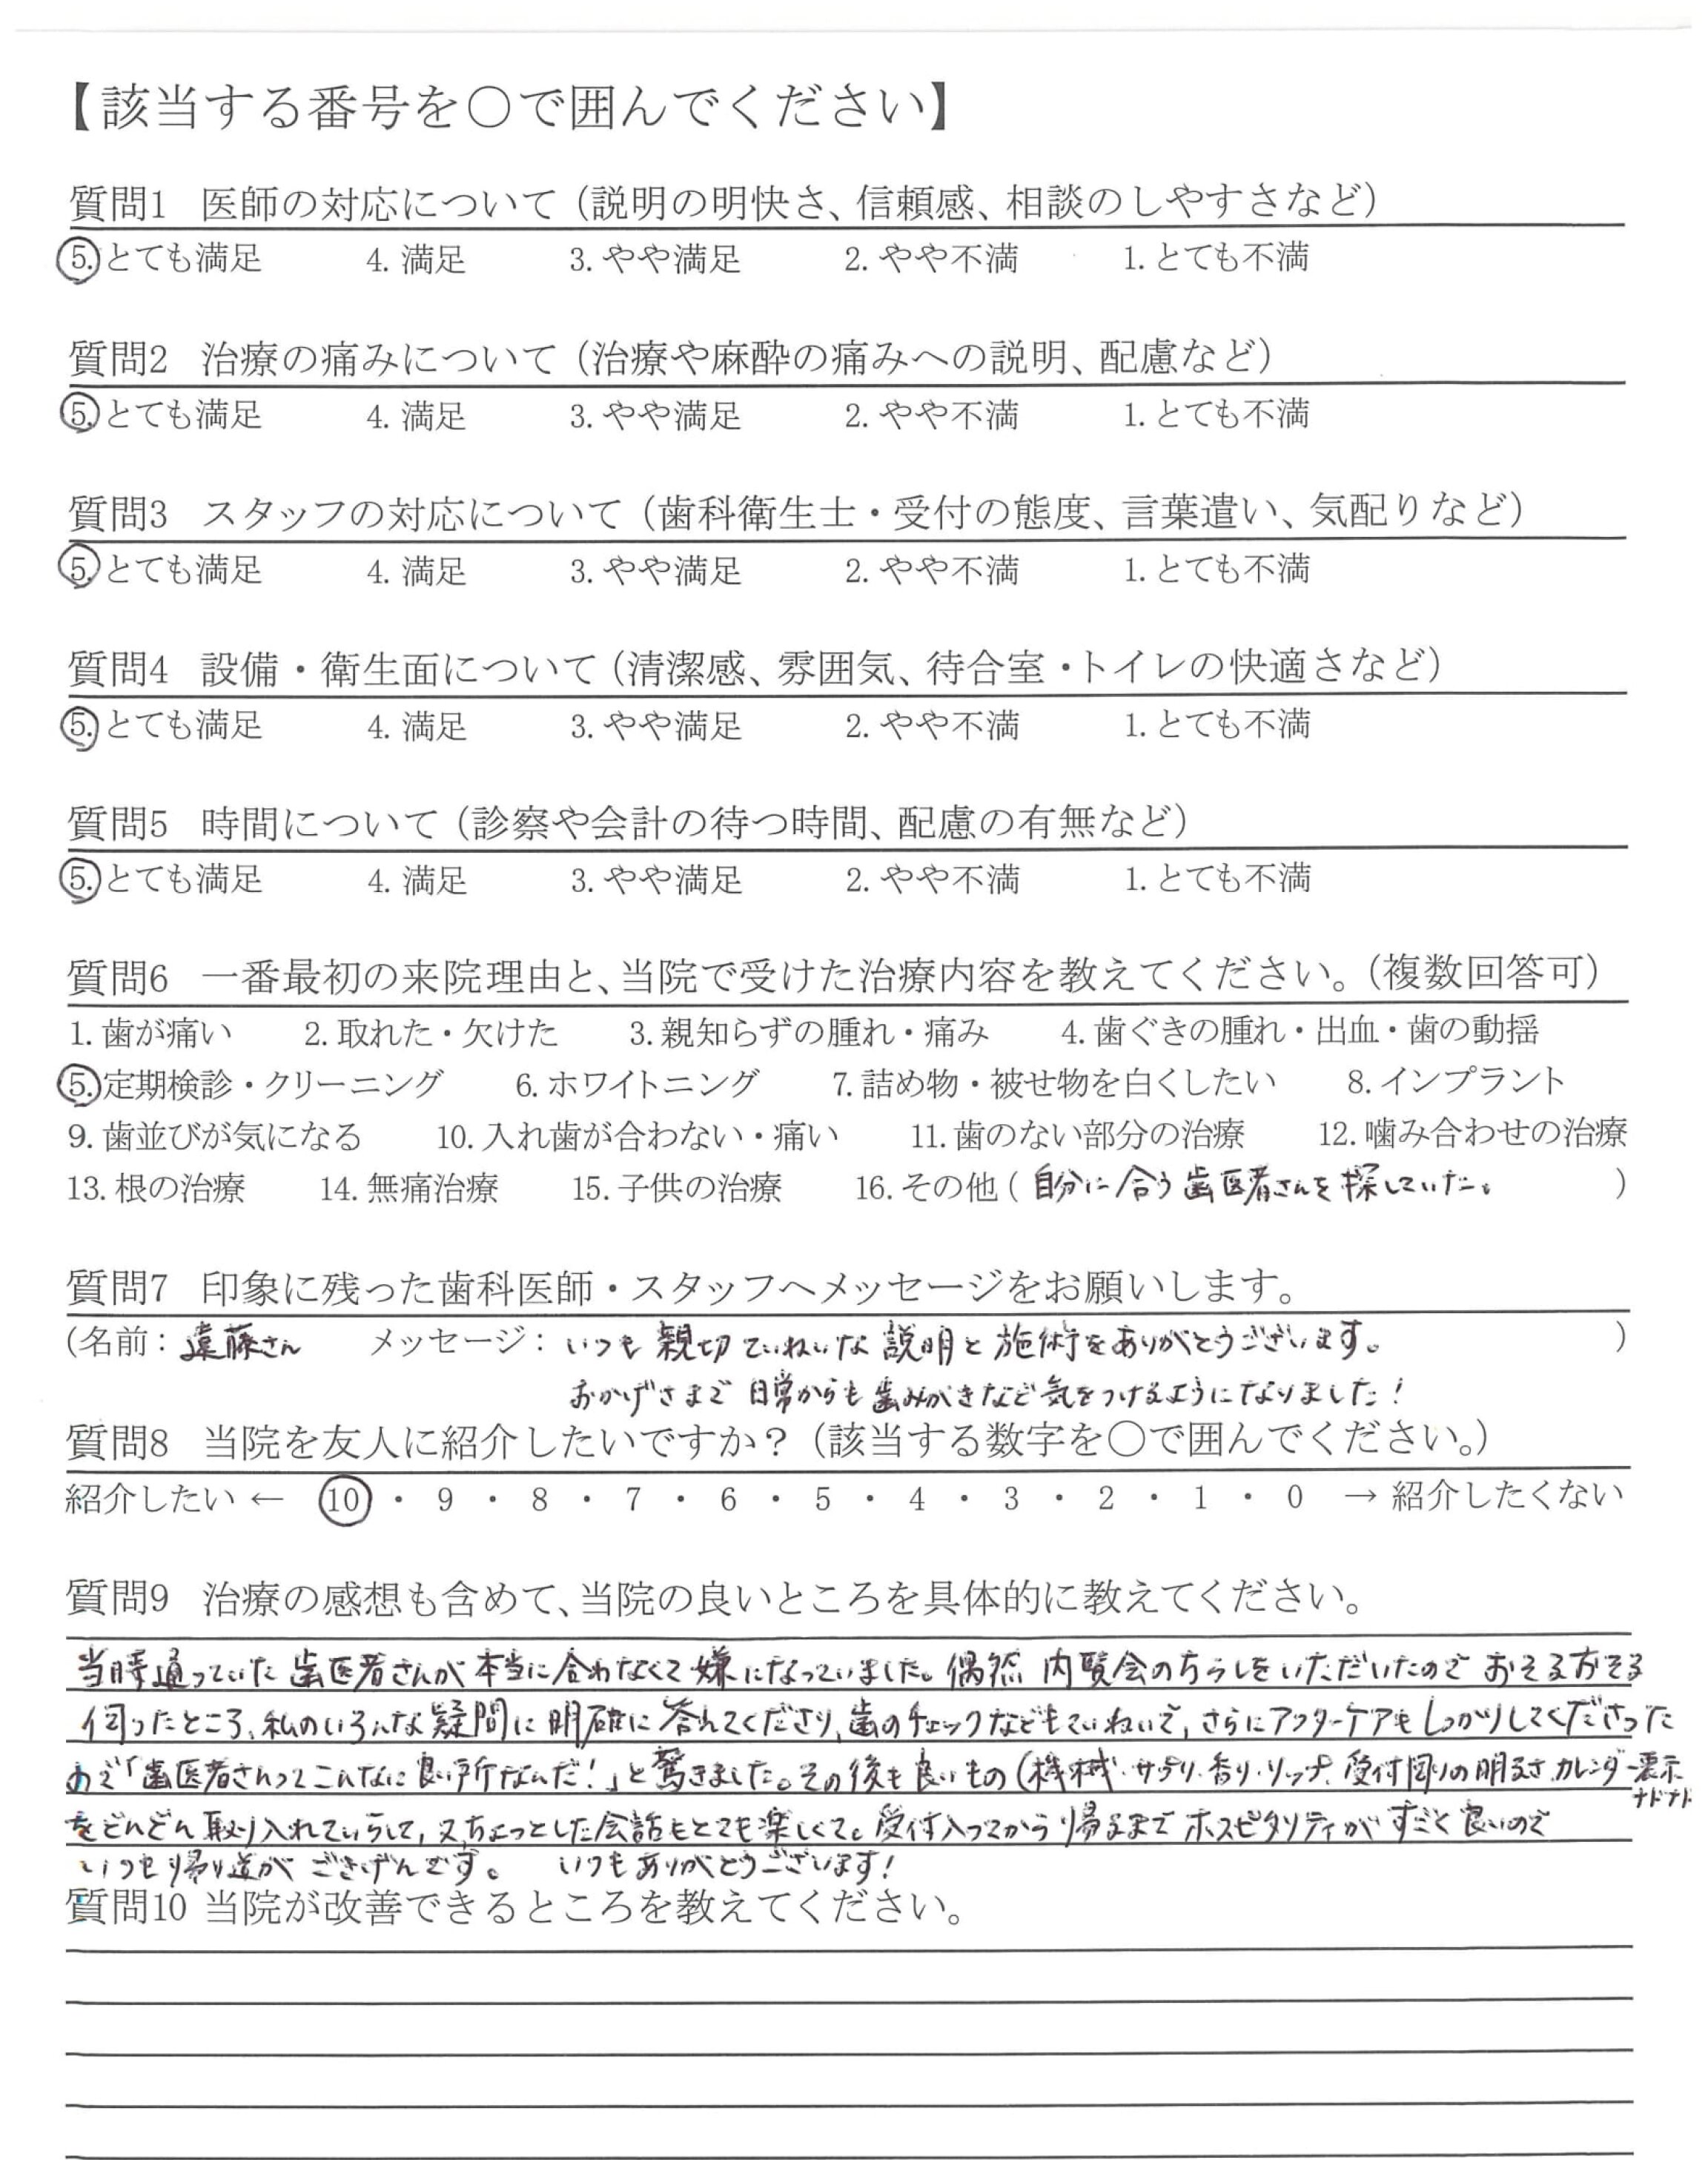 【該当する番号を○で囲んでください】
質問1 医師の対応について（説明の明快さ、信頼感、相談のしやすさなど）
5. とても満足 4. 満足 3. やや満足 2. やや不満 1. とても不満
質問2 治療の痛みについて（治療や麻酔の痛みへの説明、配慮など）
5. とても満足 4. 満足 3. やや満足 2. やや不満 1. とても不満
質問3 スタッフの対応について（歯科衛生士・受付の態度、言葉遣い、気配りなど）
5. とても満足 4. 満足 3. やや満足 2. やや不満 1. とても不満
質問4 設備・衛生面について（清潔感、雰囲気、待合室・トイレの快適さなど）
5. とても満足 4. 満足 3. やや満足 2. やや不満 1. とても不満
質問5 時間について（診察や会計の待つ時間、配慮の有無など）
5. とても満足 4. 満足 3. やや満足 2. やや不満 1. とても不満
質問6 一番最初の来院理由と、当院で受けた治療内容を教えてください。（複数回答可）
1. 歯が痛い 2. 取れた・欠けた 3. 親知らずの腫れ・痛み 4. 歯ぐきの腫れ・出血・歯の動揺
5. 定期検診・クリーニング 6. ホワイトニング 7. 詰め物・被せ物を白くしたい 8. インプラント
9. 歯並びが気になる 10. 入れ歯が合わない・痛い 11. 歯のない部分の治療 12. 噛み合わせの治療
13. 根の治療 14. 無痛治療 15. 子供の治療 16. その他（自分に合う歯医者さんを探していた。）
質問7 印象に残った歯科医師・スタッフへメッセージをお願いします。
（名前：遠藤さん メッセージ：いつも親切ていねいな説明と施術をありがとうございます。）
おかげさまで日常からも歯みがきなど気をつけるようになりました！
質問8 当院を友人に紹介したいですか？（該当する数字を○で囲んでください。）
紹介したい ← 10 ・ 9 ・ 8 ・ 7 ・ 6 ・ 5 ・ 4 ・ 3 ・ 2 ・ 1 ・ 0 → 紹介したくない
質問9 治療の感想も含めて、当院の良いところを具体的に教えてください。
当時通っていた歯医者さんが本当に合わなくて嫌になっていました。偶然内覧会のちらしをいただいたのでおそるおそる
伺ったところ、私のいろんな疑問に明確に答えてくださり、歯のチェックなどもていねいで、さらにアフターケアもしっかりしてくださった
ので「歯医者さんってこんなに良い所なんだ！」と驚きました。その後も良いもの（機械・サプリ・香り・リップ、受付周りの明るさ、カレンダー表示
ナドナド
をどんどん取り入れていらして、又、ちょっとした会話もとても楽しくて。受付入ってから帰るまでホスピタリティがすごく良いので
いつも帰り道がごきげんです。 いつもありがとうございます！
質問10 当院が改善できるところを教えてください。